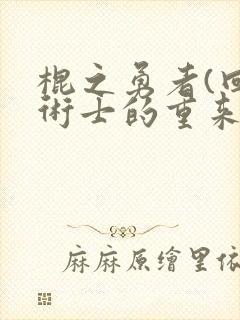 棍之勇者(回
術士的重来
麻麻原繪里依